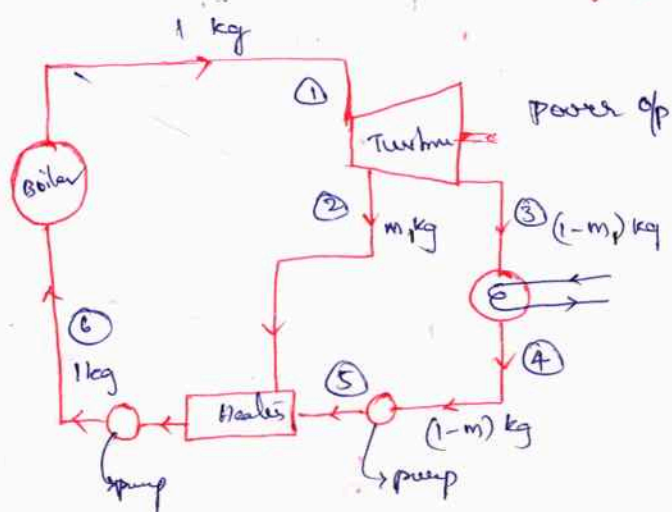 1 kg
①
Turbine
power o/p
Boiler
②
m₁kg
③
(1-m₁) kg
④
⑥
1kg
Heater
⑤
(1-m) kg
pump
pump